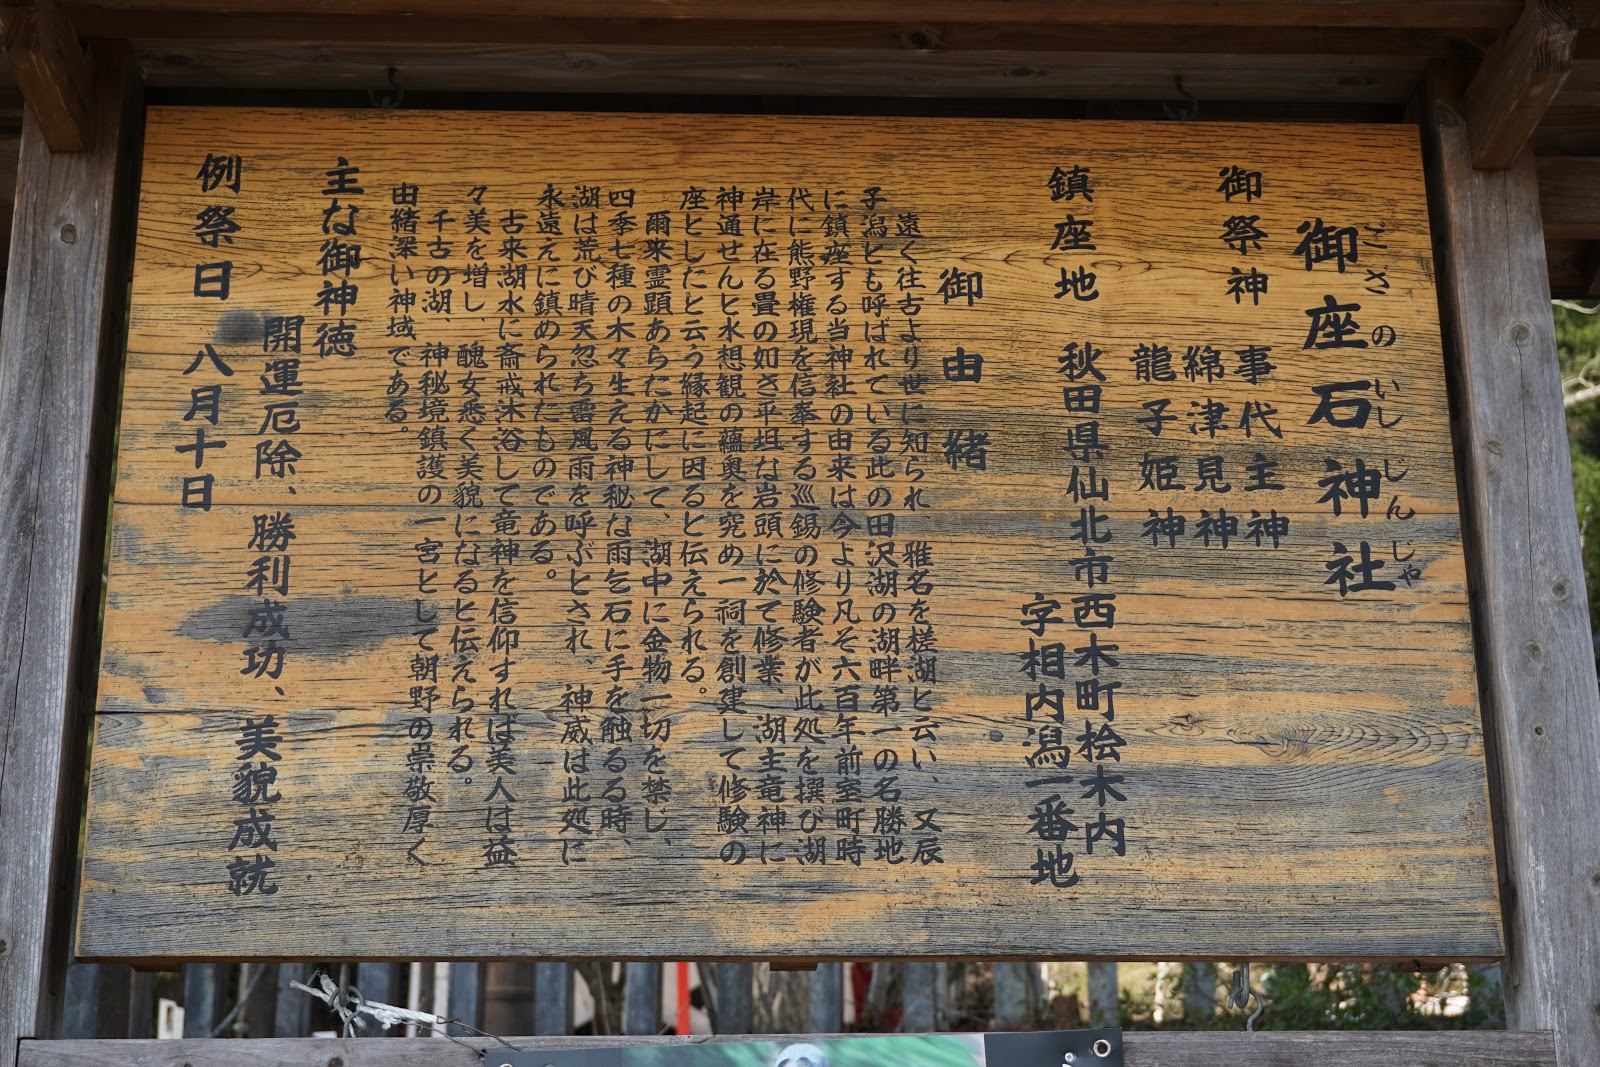 御座石神社
ござのいしじんじゃ
御祭神
事代主神
綿津見神
龍子姫神
鎮座地
秋田県仙北市西木町桧木内
字相内潟一番地
御由緒
遠く往古より世に知られ、雅名を槎湖と云い、又辰
子潟とも呼ばれている此の田沢湖の湖畔第一の名勝地
に鎮座する当神社の由来は今より凡そ六百年前室町時
代に熊野権現を信奉する巡錫の修験者が此処を撰び湖
岸に在る畳の如き平坦な岩頭に於て修業、湖主竜神に
神通せんと水想観の蘊奥を究め一祠を創建して修験の
座としたと云う縁起に因ると伝えられる。
爾来霊顕あらたかにして、湖中に金物一切を禁じ、
四季七種の木々生える神秘な雨乞石に手を触るる時、
湖は荒び晴天忽ち雷風雨を呼ぶとされ、神威は此処に
永遠えに鎮められたものである。
古来湖水に斎戒沐浴して竜神を信仰すれば美人は益
々美を増し、醜女悉く美貌になると伝えられる。
千古の湖、神秘境鎮護の一宮として朝野の崇敬厚く
由緒深い神域である。
主な御神徳
開運厄除、勝利成功、美貌成就
例祭日 八月十日